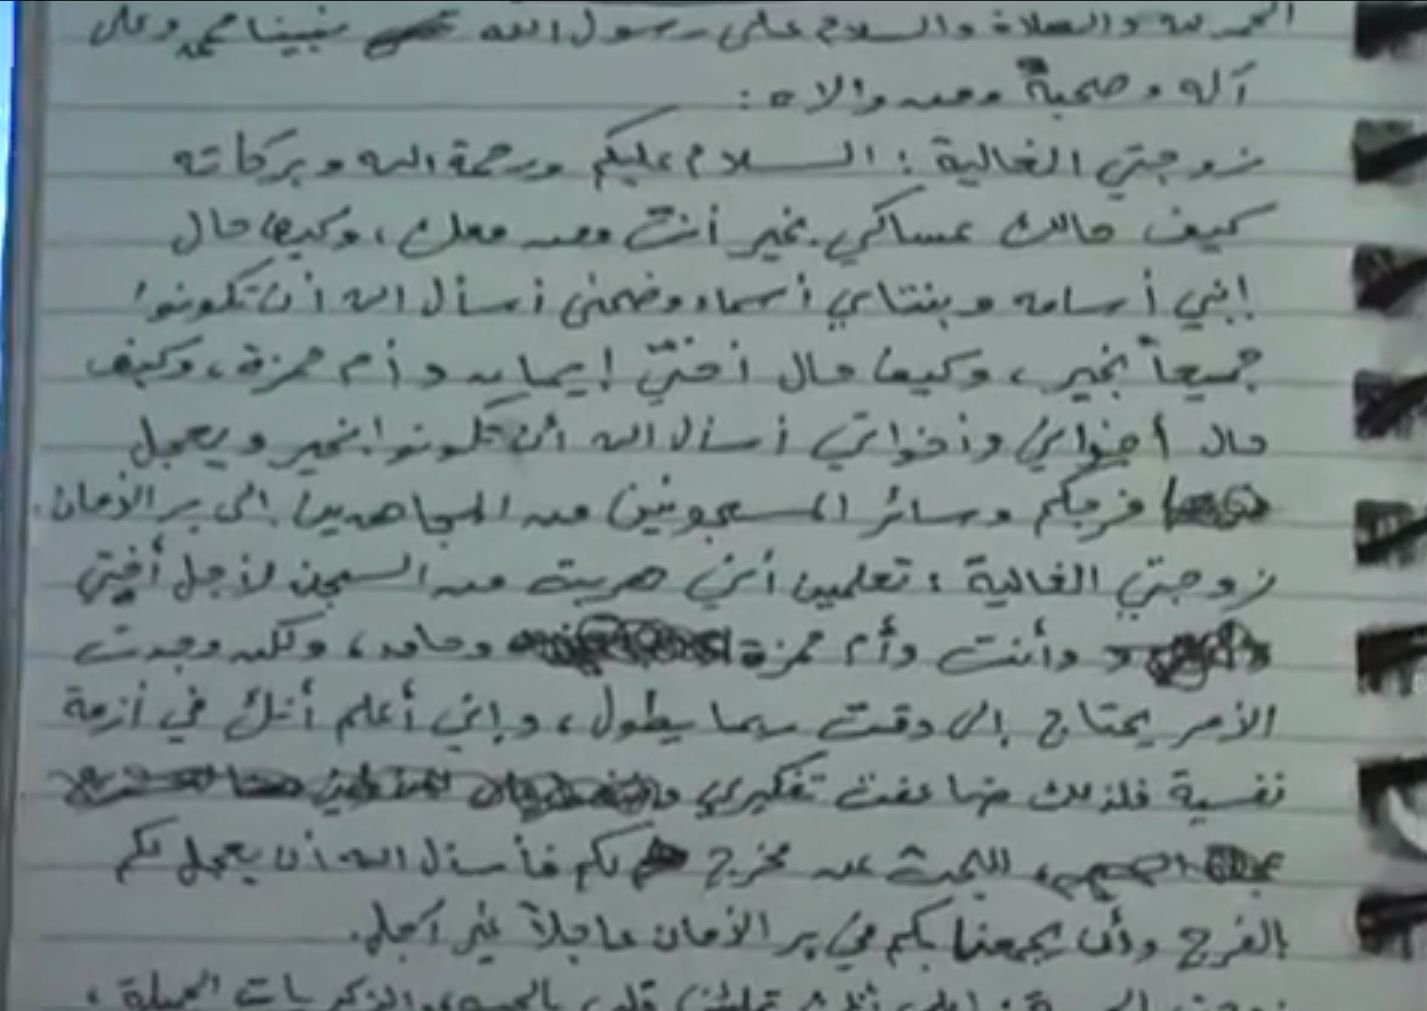 الحمد لله والصلاة والسلام على رسول الله نبينا محمد وعلى
آله وصحبة ومن والاه :
زوجتي الغالية : السلام عليكم ورحمة الله وبركاته
كيف حالك عساكي بخير أنت ومن معك ، وكيف حال
ابني أسامه وبنتاي أسماء وضحى أسأل الله أن تكونوا
جميعاً بخير ، وكيف حال أختيّ إيمان وأم حمزة ، وكيف
حال أخواني وأخواتي أسأل الله أن تكونوا بخير ويعجل
فرجكم وسائر المسجونين من المجاهدين الى بر الأمان .
زوجتي الغالية : تعلمين أني هربت من السجن لأجل أختي
وأنت وأم حمزة وحامد ، ولكن وجدت
الأمر يحتاج إلى وقت ربما يطول ، وإني أعلم أنك في أزمة
نفسية فلذلك ضاعفت تفكيري
البحث عن مخرج لكم فأسأل الله أن يعجل لكم
بالفرج وأن يجمعنا بكم في بر الأمان عاجلاً غير آجل .
قلبي بالحب والذكريات الجميلة ،